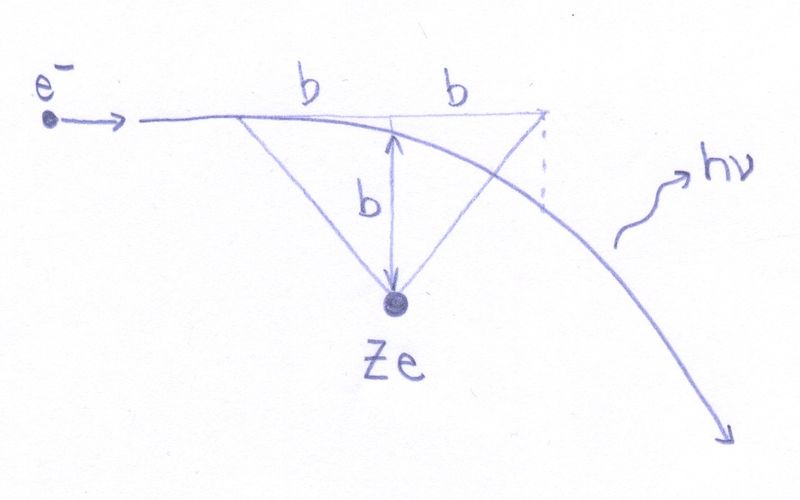 e⁻
b b
b
hν
Ze